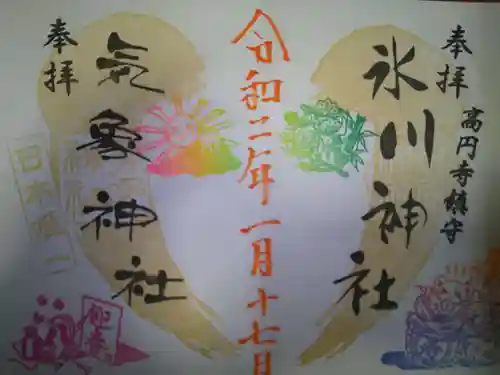 奉拝
高円寺鎮守
氷川神社
令和二年一月十七日
気象神社
奉拝
日本唯一